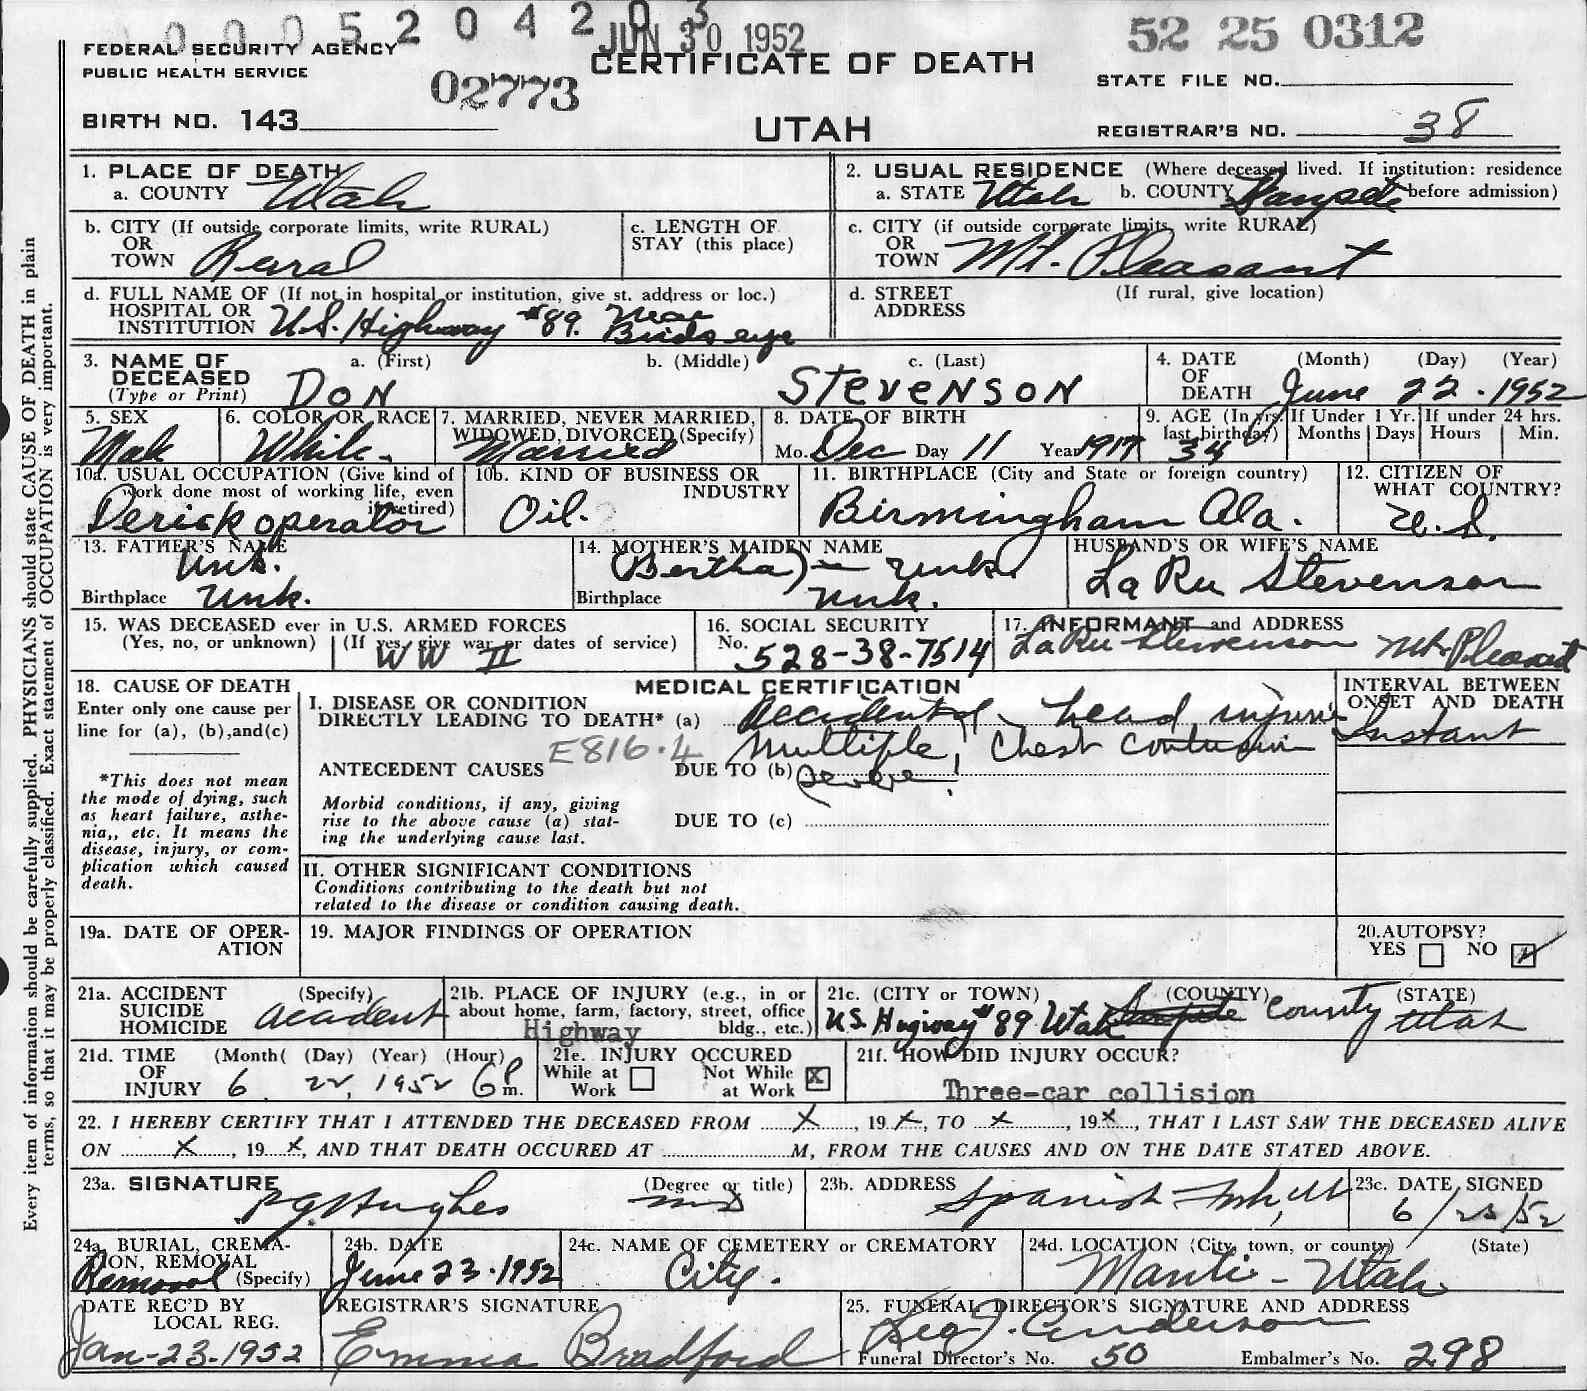 0 0 0 5 2 0 4 2 0 3
JUN 30 1952
52 25 0312
FEDERAL SECURITY AGENCY
PUBLIC HEALTH SERVICE
02773
CERTIFICATE OF DEATH
STATE FILE NO.
BIRTH NO. 143
UTAH
REGISTRAR'S NO. 38
Every item of information should be carefully supplied. PHYSICIANS should state CAUSE OF DEATH in plain
terms, so that it may be properly classified. Exact statement of OCCUPATION is very important.
1. PLACE OF DEATH
a. COUNTY Utah
2. USUAL RESIDENCE (Where deceased lived. If institution: residence
a. STATE Utah b. COUNTY Sanpete before admission)
b. CITY (If outside corporate limits, write RURAL)
OR
TOWN Rural
c. LENGTH OF
STAY (this place)
c. CITY (if outside corporate limits, write RURAL)
OR
TOWN Mt. Pleasant
d. FULL NAME OF (If not in hospital or institution, give st. address or loc.)
HOSPITAL OR
INSTITUTION U.S. Highway #89. Near
Birdseye
d. STREET (If rural, give location)
ADDRESS
3. NAME OF a. (First) b. (Middle) c. (Last)
DECEASED
(Type or Print) DON STEVENSON
4. DATE (Month) (Day) (Year)
OF
DEATH June 22. 1952
5. SEX
Male
6. COLOR OR RACE
White.
7. MARRIED, NEVER MARRIED,
WIDOWED, DIVORCED (Specify)
Married
8. DATE OF BIRTH
Mo. Dec Day 11 Year 1917
9. AGE (In yrs.
last birthday)
34
If Under 1 Yr.
Months Days
If under 24 hrs.
Hours Min.
10a. USUAL OCCUPATION (Give kind of
work done most of working life, even
if retired)
Derick operator
10b. KIND OF BUSINESS OR
INDUSTRY
Oil.
11. BIRTHPLACE (City and State or foreign country)
Birmingham Ala.
12. CITIZEN OF
WHAT COUNTRY?
U.S.
13. FATHER'S NAME
Unk.
Birthplace Unk.
14. MOTHER'S MAIDEN NAME
(Bertha) - Unk.
Birthplace Unk.
HUSBAND'S OR WIFE'S NAME
LaRu Stevenson
15. WAS DECEASED ever in U.S. ARMED FORCES
(Yes, no, or unknown) (If yes, give war or dates of service)
WW II
16. SOCIAL SECURITY
No. 528-38-7514
17. INFORMANT and ADDRESS
LaRu Stevenson Mt. Pleasant
18. CAUSE OF DEATH
Enter only one cause per
line for (a), (b), and (c)
*This does not mean
the mode of dying, such
as heart failure, asthe-
nia,, etc. It means the
disease, injury, or com-
plication which caused
death.
MEDICAL CERTIFICATION
I. DISEASE OR CONDITION
DIRECTLY LEADING TO DEATH* (a) Accidental - head injuries
E816.4 Multiple, Chest contusion
ANTECEDENT CAUSES DUE TO (b) severe!
Morbid conditions, if any, giving
rise to the above cause (a) stat-
ing the underlying cause last.
DUE TO (c)
INTERVAL BETWEEN
ONSET AND DEATH
Instant
II. OTHER SIGNIFICANT CONDITIONS
Conditions contributing to the death but not
related to the disease or condition causing death.
19a. DATE OF OPER-
ATION
19. MAJOR FINDINGS OF OPERATION
20. AUTOPSY?
YES NO
21a. ACCIDENT (Specify)
SUICIDE
HOMICIDE Accident
21b. PLACE OF INJURY (e.g., in or
about home, farm, factory, street, office
bldg., etc.)
Highway
21c. (CITY or TOWN) (COUNTY) (STATE)
U.S. Higway #89. Utah Sanpete County Utah
21d. TIME (Month( (Day) (Year) (Hour)
OF
INJURY 6 22, 1952 6 P m.
21e. INJURY OCCURED
While at Work Not While at Work X
21f. HOW DID INJURY OCCUR?
Three-car collision
22. I HEREBY CERTIFY THAT I ATTENDED THE DECEASED FROM X, 19 X, TO X, 19 X, THAT I LAST SAW THE DECEASED ALIVE
ON X, 19 X, AND THAT DEATH OCCURED AT M, FROM THE CAUSES AND ON THE DATE STATED ABOVE.
23a. SIGNATURE (Degree or title)
Hughes MD
23b. ADDRESS
Spanish
23c. DATE SIGNED
6/23/52
24a. BURIAL, CREMA-
TION, REMOVAL
Removal (Specify)
24b. DATE
June 23. 1952
24c. NAME OF CEMETERY or CREMATORY
City.
24d. LOCATION (City, town, or county) (State)
Manti - Utah
DATE REC'D BY
LOCAL REG.
Jan-23.1952
REGISTRAR'S SIGNATURE
Emma Bradford
25. FUNERAL DIRECTOR'S SIGNATURE AND ADDRESS
Anderson
Funeral Director's No. 50 Embalmer's No. 298